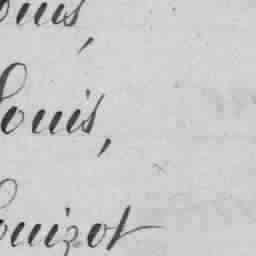 ouis,
Louis,
ouizot